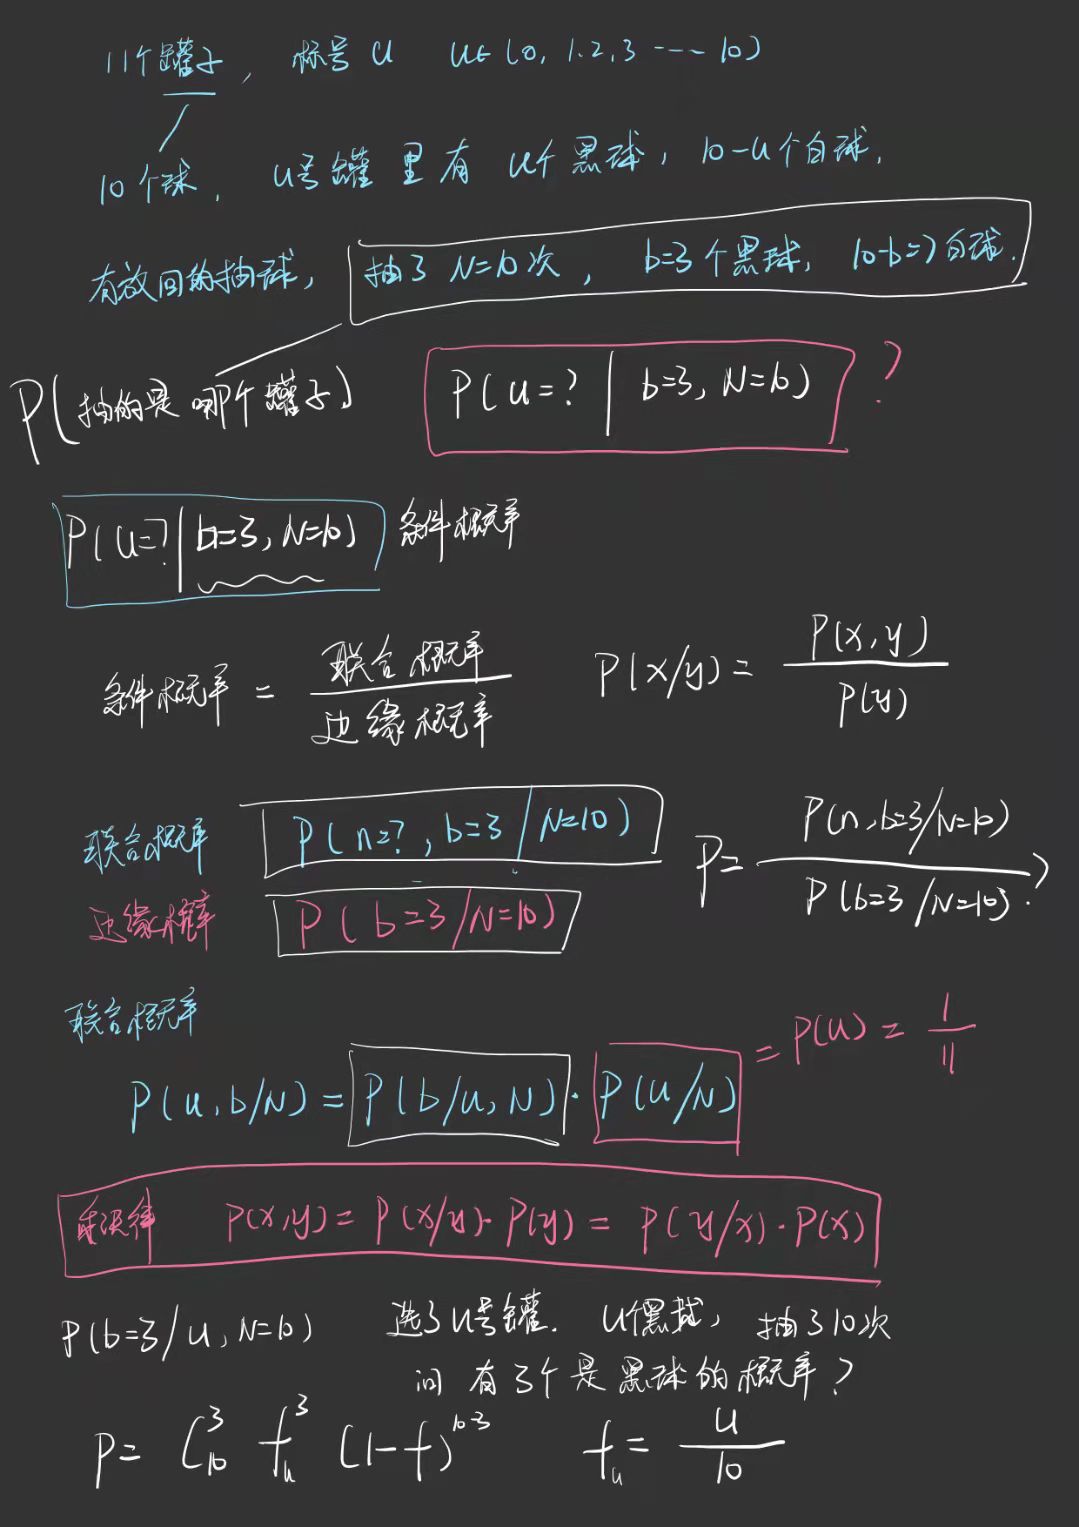 11个罐子, 标号u u∈(0, 1.2,3 ---- 10)
10个球, u号罐里有u个黑球, 10-u个白球,
有放回的抽球, 抽了N=10次, b=3个黑球, 10-b=7白球.
P(抽的是哪个罐子) P(u=? | b=3, N=10) ?
P(u=? | b=3, N=10) 条件概率
条件概率 = 联合概率 / 边缘概率 P(x/y) = P(x,y) / P(y)
联合概率 P(n=?, b=3/N=10) P= P(n,b=3/N=10) / P(b=3/N=10)?
边缘概率 P(b=3/N=10)
联合概率
P(u,b/N) = P(b/u,N) · P(u/N) = P(u) = 1/11
乘法律 P(x,y) = P(x/y)·P(y) = P(y/x)·P(x)
P(b=3/u,N=10) 选了u号罐. u个黑球, 抽了10次
问有3个是黑球的概率?
P= C₁₀³ fᵤ³ (1-f)¹⁰⁻³ fᵤ = u/10